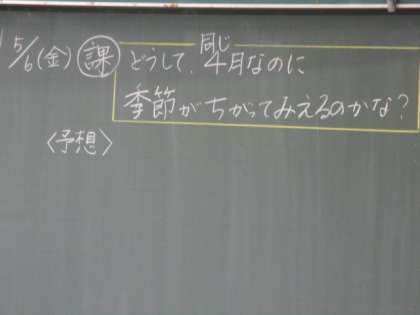 5/6(金) 課 どうして、同じ4月なのに
季節がちがってみえるのかな?
〈予想〉